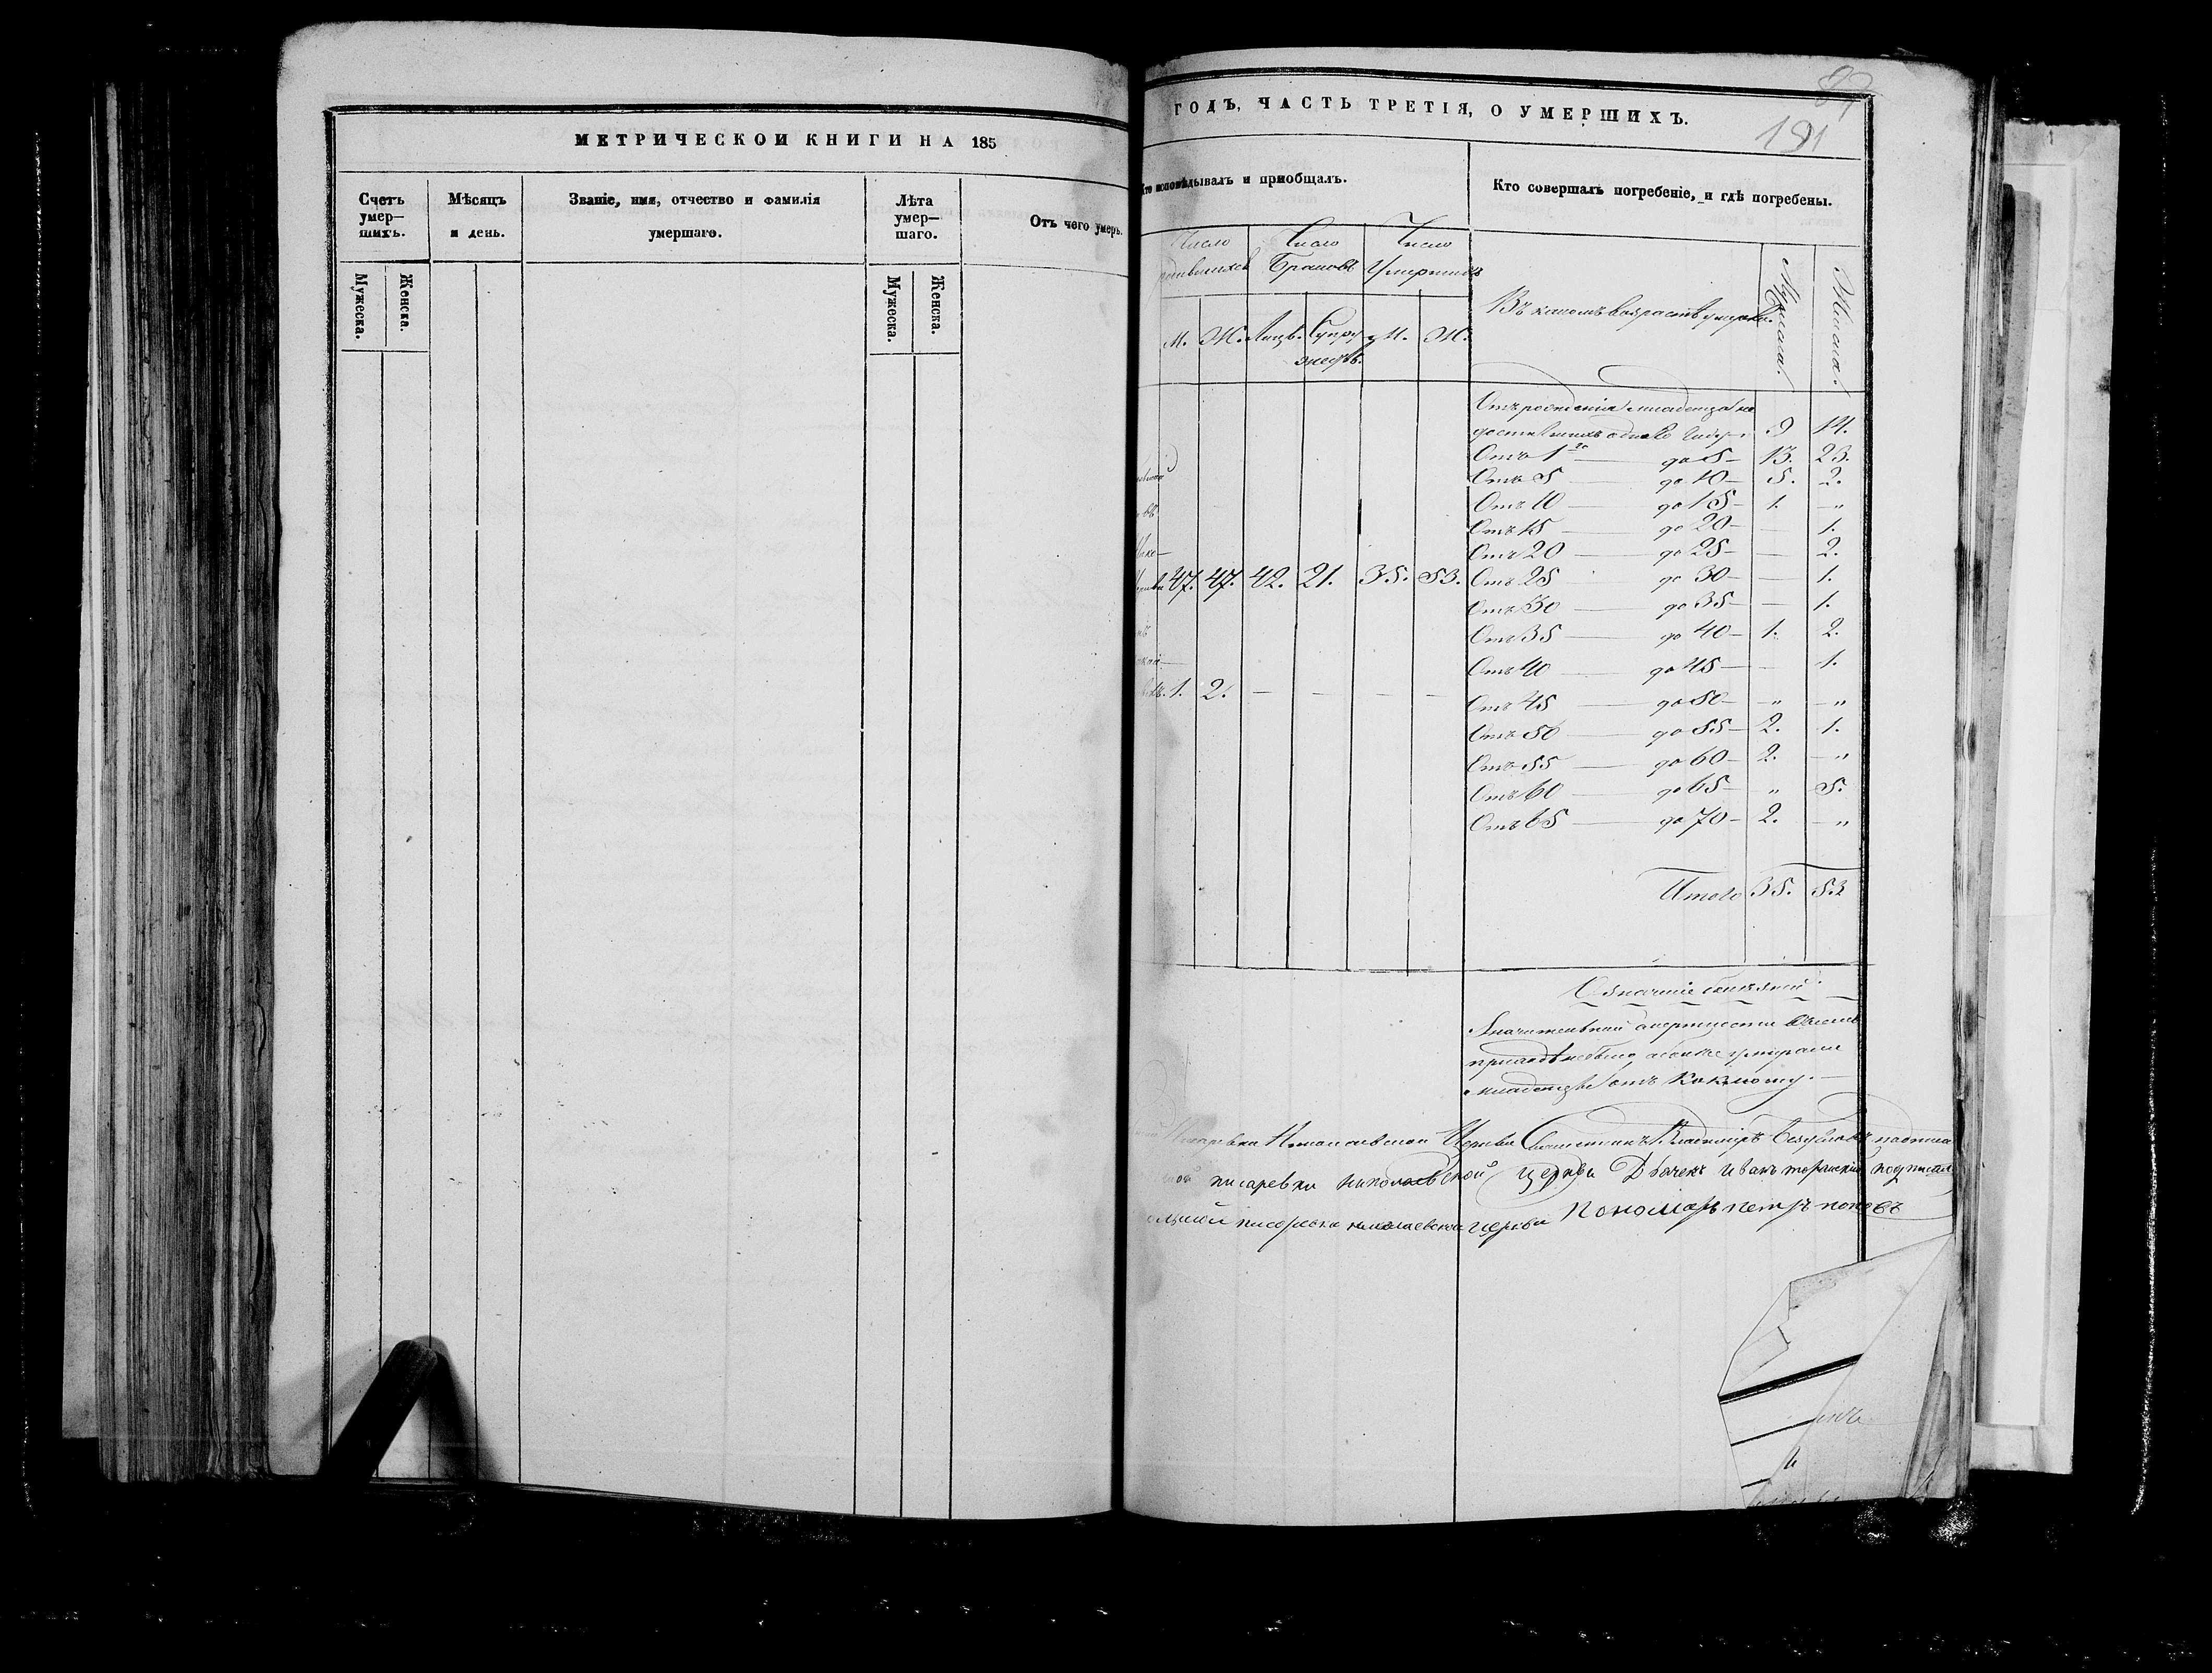 МЕТРИЧЕСКОЙ КНИГИ НА 185
Счетъ умер—шихъ.
Мѣсяцъ и день.
Званіе, имя, отчество и фамилія умершаго.
Лѣта умер—шаго.
Отъ чего умеръ.
Мужеска. Женска.
Мужеска. Женска.
89
191
ГОДЪ, ЧАСТЬ ТРЕТІЯ, О УМЕРШИХЪ.
Кто исповѣдывалъ и пріобщалъ.
Кто совершалъ погребеніе, и гдѣ погребены.
Число Число Число
Браковъ Умершихъ
Въ какомъ возрастѣ умерли.
Мужеска. Женска.
М. Ж. Лицъ. Супружествъ. М. Ж.
Отъ рожденія младенца не
9 14.
Отъ 1го до 5 — 13. 23.
Отъ 5 — до 10 — 5. 2.
Отъ 10 — до 15 — 1. — „
Отъ 15 — до 20 — — 1.
Отъ 20 — до 25 — — 2.
47. 47. 42. 21. 35. 53. Отъ 25 до 30 — — 1.
Отъ 30 — до 35 — — 1.
Отъ 35 — до 40 — 1. 2.
Отъ 40 — до 45 — — 1.
1. 2. — — — —
Отъ 45 — до 50 — — „ — „
Отъ 50 — до 55 — 2. 1.
Отъ 55 — до 60 — 2. — „
Отъ 60 — до 65 — „ 5.
Отъ 65 — до 70 — 2. — „
Итого 35. 53
Значительной смертности въ семъ
приходѣ небыло, а болѣе умирали
младенцы отъ Коклюшу. —
Писаревки Николаевской Церкви Священникъ Владиміръ
писаревки николаевской церкви Дьячекъ Иванъ подписал
писаревки николаевской церкви Пономарь петръ поповъ